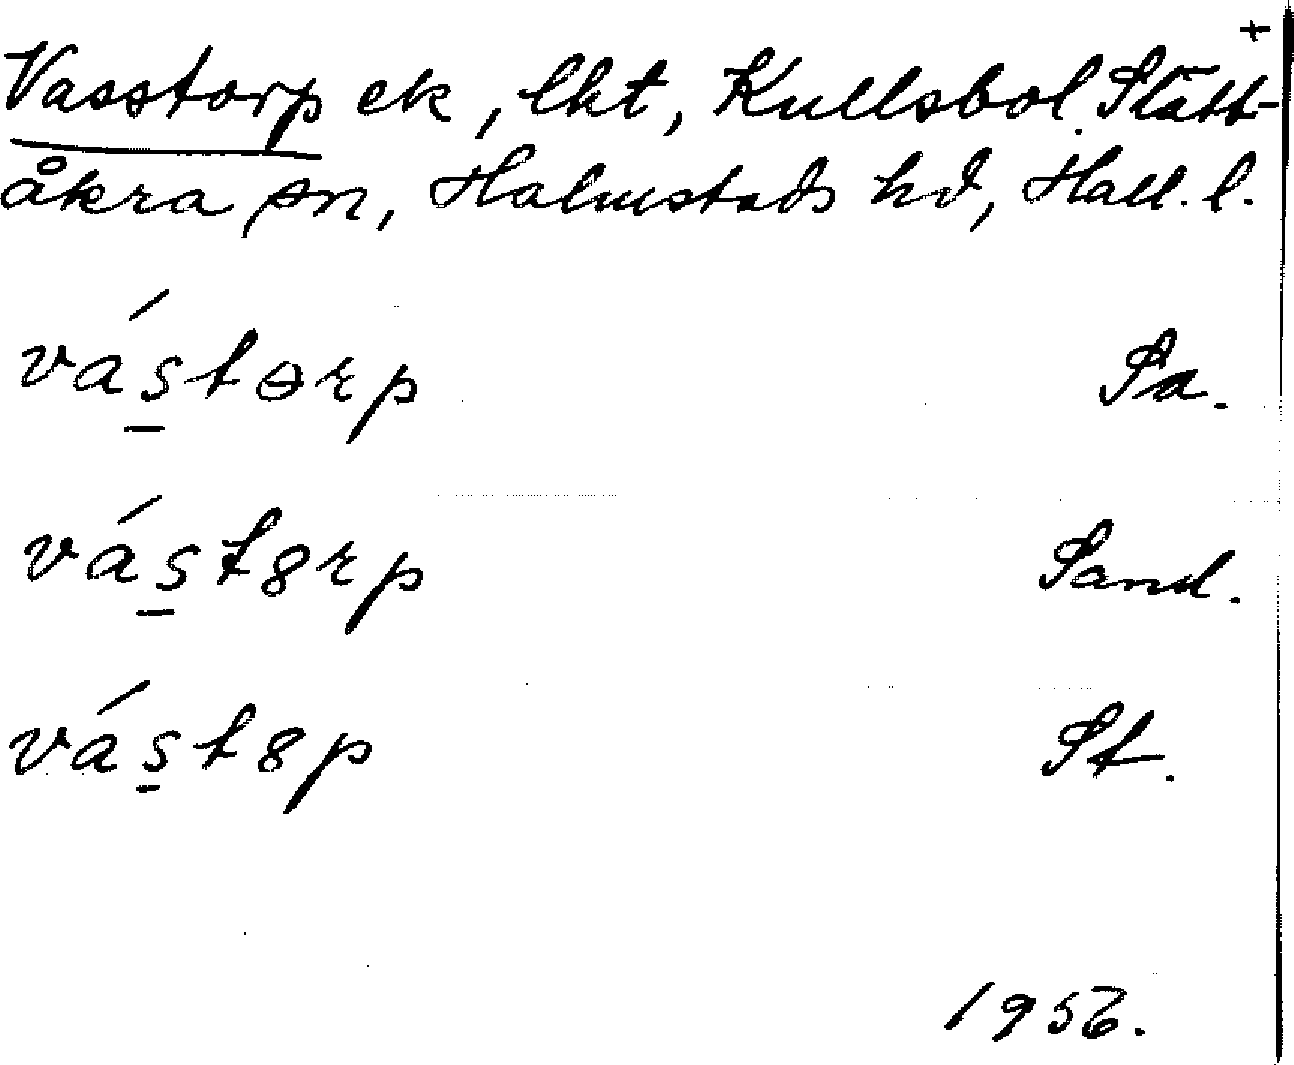 +
Vasstorp ek, lht, Kullsbol. Slätt-
åkra sn, Halmstads hd, Hall. l.
vás̲tɵrp Sa.
vás̲t8rp Sand.
vás̲t8p St.
1956.